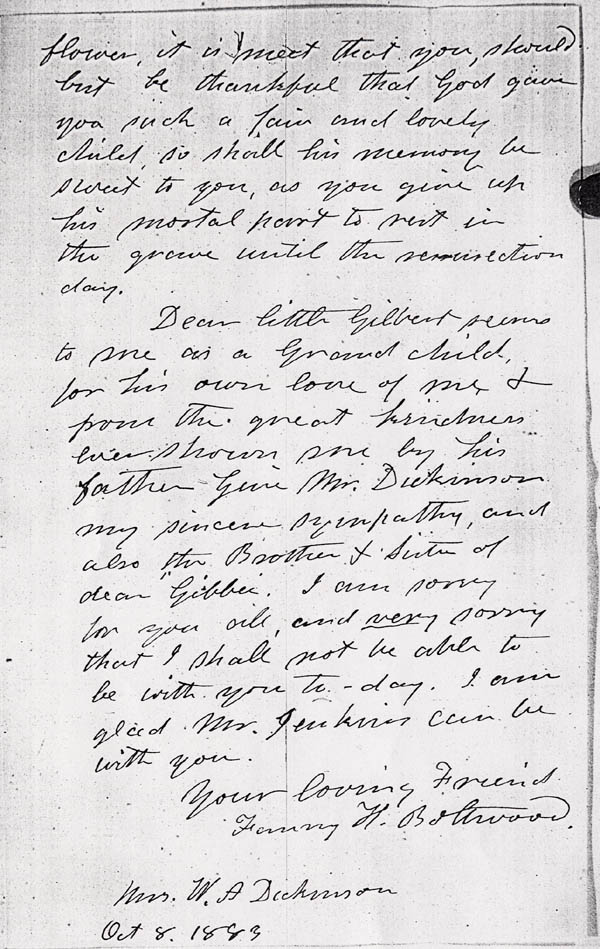 flower, it is meet that you, should
but be thankful that God gave
you such a fair and lovely
child, so shall his memory be
sweet to you, as you give up
his mortal part to rest in
the grave until the resurrection
day.
Dear little Gilbert seems
to me as a Grand child,
for his own love of me, &
from the great kindness
ever shown me by his
father Give Mr. Dickinson
my sincere sympathy, and
also the Brother & Sister of
dear "Gibbie. I am sorry
for you all, and very sorry
that I shall not be able to
be with you to-day. I am
glad Mr. Jenkins can be
with you.
Your loving Friend
Fanny H. Boltwood.
Mrs. W. A Dickinson
Oct 8. 1883